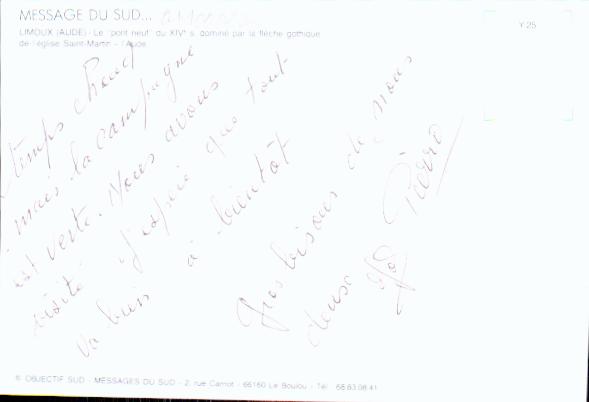 MESSAGE DU SUD...
LIMOUX (AUDE) - Le "pont neuf" du XIVe s. dominé par la flèche gothique
de l'église Saint-Martin - l'Aude
Y 25
temps chaud
mais la campagne
est verte. Nous avons
visité j'espère que tout
va bien à bientôt
Gros bisous de nous
deux
Pierro
© OBJECTIF SUD - MESSAGES DU SUD - 2, rue Carnot - 66160 Le Boulou - Tél. 68.83.08.41